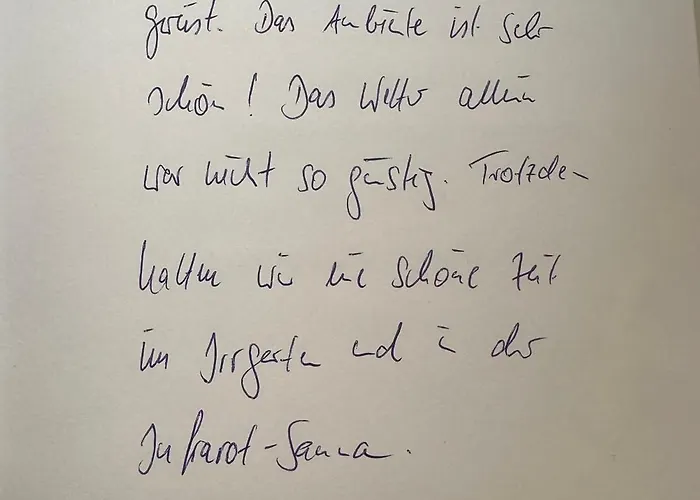 gereist. Das Ambiente ist sehr
schön! Das Wetter allein
war nicht so günstig. Trotzdem
hatten wir eine schöne Zeit
im Irrgarten und in der
Infrarot-Sauna.